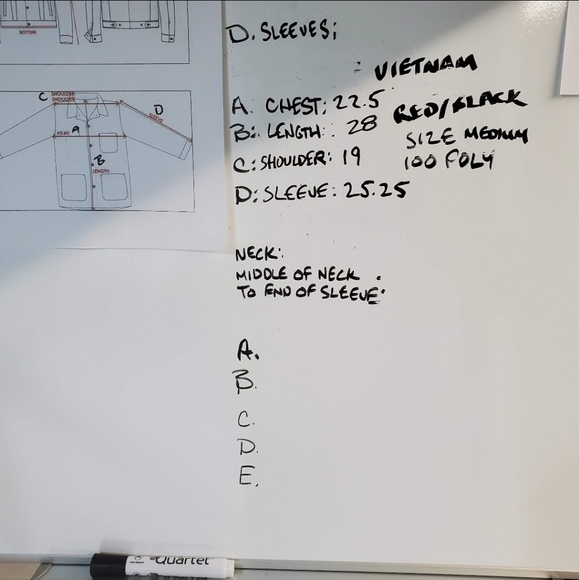 D. SLEEVES;
VIETNAM
A. CHEST: 22.5 RED/BLACK
B: LENGTH: 28 SIZE MEDIUM
C: SHOULDER: 19 100 POLY
D: SLEEVE: 25.25
NECK:
MIDDLE OF NECK
TO END OF SLEEVE:
A.
B.
C.
D.
E.
BOTTOM
C SHOULDER
SHOULDER
D
SLEEVE
A
B
LENGTH
Quartet